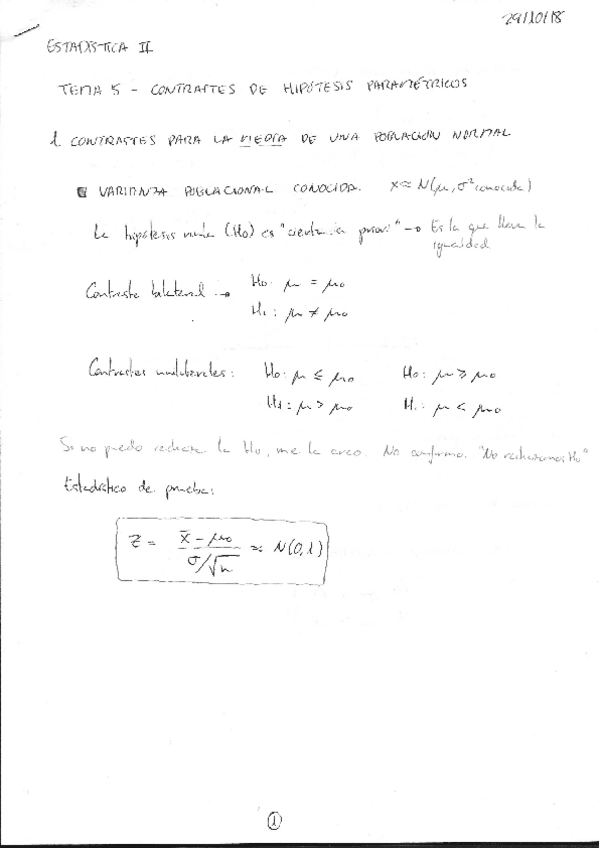 29/10/18
ESTADÍSTICA II
TEMA 5 - CONTRASTES DE HIPÓTESIS PARAMÉTRICOS
1. CONTRASTES PARA LA MEDIA DE UNA POBLACIÓN NORMAL
VARIANZA POBLACIONAL CONOCIDA. X ≈ N(μ, σ² conocida)
La hipótesis nula (H₀) es " " → Es la que lleva la
igualdad
Contraste bilateral → H₀: μ = μ₀
H₁: μ ≠ μ₀
Contrastes unilaterales: H₀: μ ≤ μ₀ H₀: μ ≥ μ₀
H₁: μ > μ₀ H₁: μ < μ₀
Si no puedo rechazar la H₀, me la creo. No confirmo. "No rechazamos H₀"
Estadístico de prueba:
Z = (x̄ - μ₀)/(σ/√n) ≈ N(0,1)
1